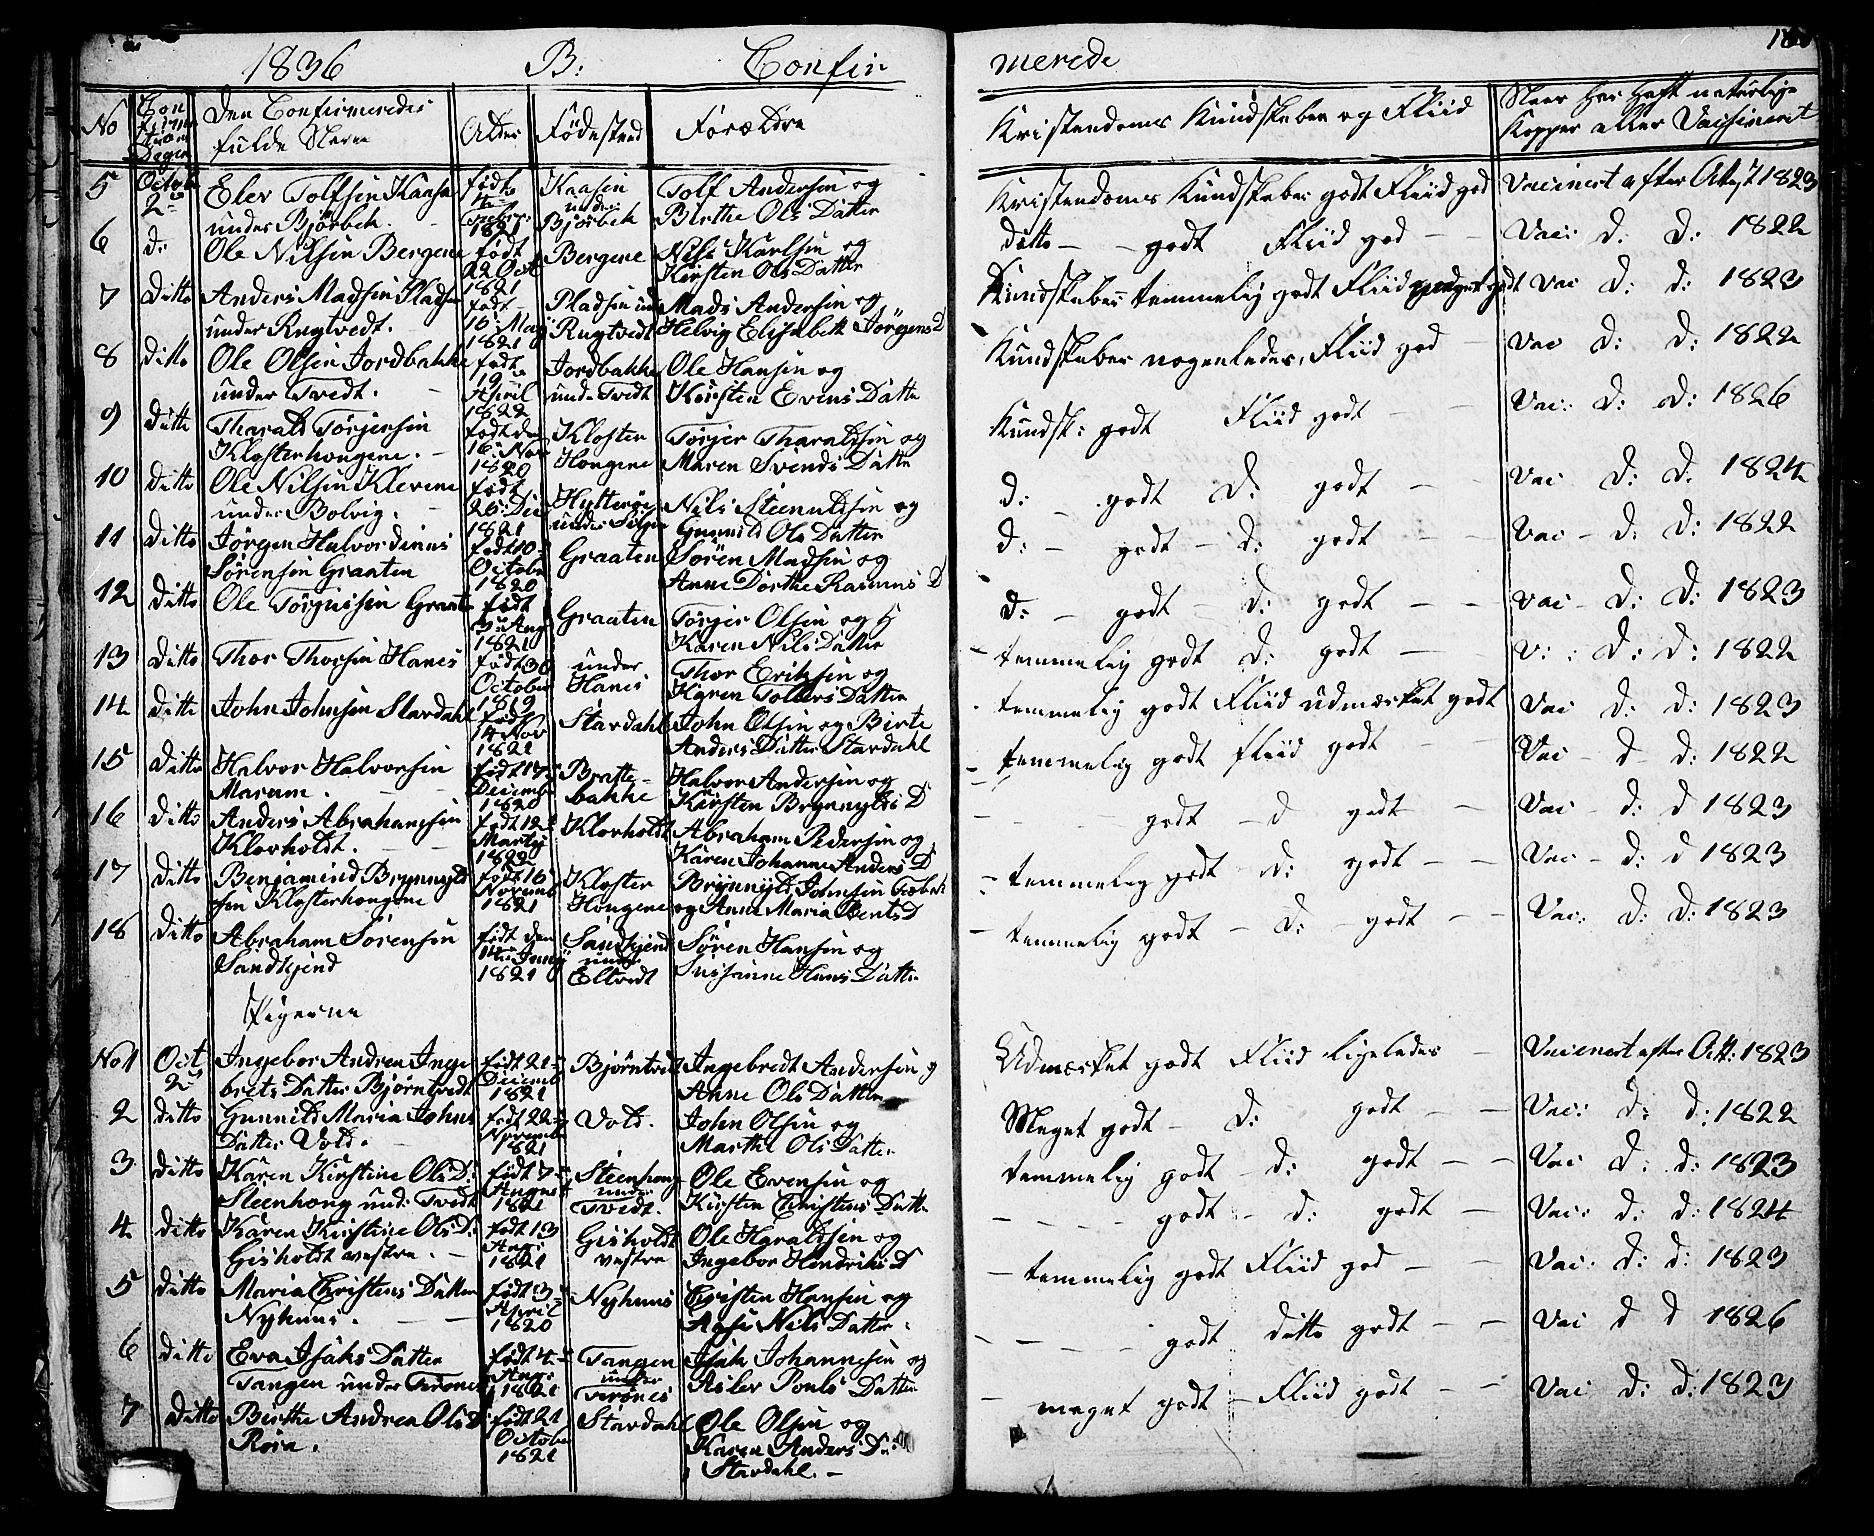 1836 B: Confir merede
No
Con firma tions Dagen
Den Confirmeredes fulde Navn
Alder
Fødested
Forældre
Kristendoms Kundskaber og Fliid
Naar har haft naturlige Kopper eller Vaccineret
5 Octob 2 Elev Tolfsen Kaasa under Bjørbek. født 4 Febr: 1821 Kaasen under Bjørbek Tolf Andersen og Birthe Ols Datter Kristendoms Kundskaber godt Fliid god Vaccinert efter Attest 1823
6 d: Ole Nilsen Bergene født 22 Oct 1821 Bergene Nils Karlsen og Kirsten Ols Datter ditto - - godt Fliid god - - Vac: d: d: 1822
7 Ditto Anders Madsen Pladsen under Rugtvedt. født 16 May 1821 Pladsen und Rugtvedt Mads Andersen og Helvig Elisabeth Jørgens D Kundskaber temmelig godt Fliid meget godt Vac d: d: 1823
8 ditto Ole Olsen Jordbakke under Tvedt. født 19 April 1822 Jordbakke und Tvedt Ole Hansen og Kirsten Evens Datter Kundskaber nogenledes, Fliid god - Vac d: d: 1822
9 ditto Tharald Torjersen Klosterhougene. født den 16 Nov 1820 Kloster Hougene Torjer Tharaldsen og Maren Svends Datter Kundsk: godt Fliid godt - - Vac: d: d: 1826
10 ditto Ole Nilsen Klevene under Bolvig. født 26 Dec 1821 Hytterøe under Siljen Nils Steenuldsen og Gunnild Ols Datter d: - godt d: godt - - Vac d: d. 1824
11 ditto Jørgen Halvor dinius Sørensen Graaten født 10 October 1820 Graaten Søren Madsen og Anne Dorthe Rasmus D d: - godt - d: godt - - Vac - d: d: 1822
12 ditto Ole Torguisen Graaten født 3 Aug 1821 Graaten Torger Olsen og Karen Nils Datter d: - godt - d: godt - - Vac - d: d: 1823
13 ditto Thor Thorsen Hanes født 30 October 1819 under Hanes Thor Eriksen og Karen Tollers Datter temmelig godt d: godt - - V: : d: d: 1822
14 ditto John Johnsen Stardahl født 14 Nov 1821 Stardahl John Olsen og Birte Anders Datter Stardahl temmelig godt Fliid udmærket godt Vac d: d: 1823
15 ditto Halvor Halvorsen Marum. født 17 Decemb 1820 Bratte-bakke Halvor Andersen og Kirsten Brynnylds D - temmelig godt fliid godt - - Vac - d - d: 1822
16 ditto Anders Abrahamsen Klovholdt. født 12 Martij 1822 Klovholdt Abraham Pedersen og Karen Johanne Anders D - - - godt - d godt - Vac - d: d 1823
17 ditto Benjamind Brynnyld sen Klosterhougene født 16 Novemb 1821 Kloster Hougene Brynnyld Johnsen Fæbek og Anne Maria Bents D - temmelig godt d: godt - - Vac - d: d 1823
18 ditto Abraham Sørensen Sandkjend født den 14 Juny 1821 Sandkjend under Eltvedt Søren Hansen og Susanne Hans Datter - temmelig godt - d: - godt - - Vac: d: d: 1823
Pigerne
No 1 Oct 2 Ingebor Andrea Inge brets Datter Bjørntvedt født 21 Decemb 1821 Bjørntvedt Ingebredt Andersen og Anne Ols Datter Udmærket godt Fliid ligeledes - Vaccinert efter Att: 1823
2 ditto Gunnild Maria Johns Datter Vold. født 22 Novemb 1821 Vold. John Olsen og Marthe Ols Datter Meget godt - d: godt - - Vac: d: d: 1822
3 ditto Karen Kirstine Ols D: Steenhoug und: Tvedt født 7 August 1821 Steenhoug under Tvedt. Ole Evensen og Kirsten Christens Datter temmelig godt - d: godt - - Vac d: d: 1823
4 ditto Karen Kirstine Ols D: Gisholdt vestre. født 13 Aug: 1821 Gisholdt vestre Ole Haraldsen og Ingebor Hendriks D - - - - godt - d: godt - Vac: d: d: 1824
5 ditto Maria Christens Datter Nyhuus. født 3 April 1820 Nyhuus Christen Hansen og Aase Nils Datter. - temmelig godt Fliid god - - Vac: d: d: 1823
6 ditto Eva Isaks Datter Tangen under Firønes født 4 Aug: 1821 Tangen under Firønes Isak Johannesen og Aslev Pouls Datter - - - godt ditto godt - - Vac d d 1826
7 ditto Birthe Andrea Ols D: Røra. født 21 October 1821 Stardahl Ole Olsen og Karen Anders D: Stardahl. - - meget godt - Fliid godt - - Vac d: d: 1823